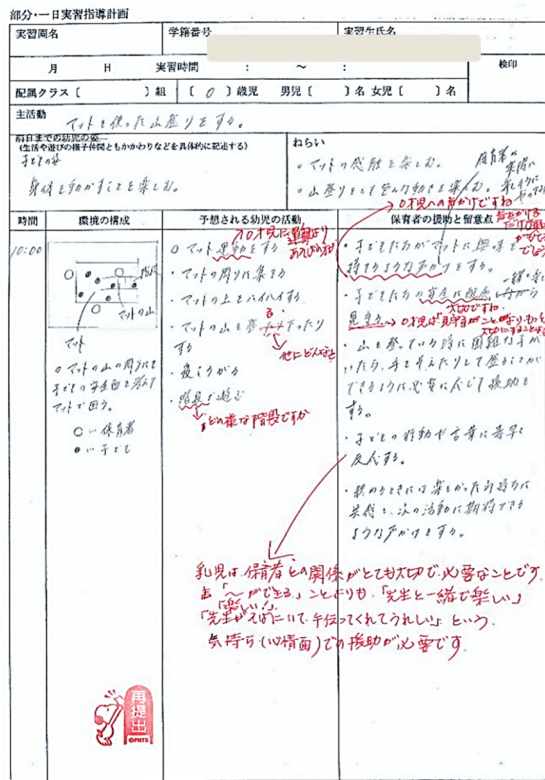 部分・一日実習指導計画
実習園名 学籍番号 実習生氏名
月 日 実習時間 : ～ : 検印
配属クラス〔 〕組 〔 0 〕歳児 男児〔 〕名 女児〔 〕名
主活動
マットを使った山登りをする。
前日までの幼児の姿
(生活や遊びの様子仲間ともかかわりなどを具体的に記述する)
子どもの姿
身体を動かすことを楽しむ。
ねらい
○マットの感触を楽しむ。
○山登りをして を楽しむ。
保育者が
実際に
時間 環境の構成 予想される幼児の活動 保育者の援助と留意点
10:00
階段
マットの山
マット
○マットの山の周りにも
子どもの安全面を考えて
マットで囲う。
○…保育者
●…子ども
○マット運動をする
0才児に運動より
あそび
・マットの周りに集まる
・マットの上をハイハイする
・マットの山を登ったり下ったり
する
他にどんな
・寝ころがる
・階段で遊ぶ
どの様な階段ですか
0才児への声かけですね
・子どもたちがマットに興味を
持ちような声かけをする。
・子どもたちの安全に配慮しながら
見守る
一緒に
大切ですね
0才児は「見守る」ことよりも、もっと
大切にすること
・山を登っている時に困難な子が
いたら、手を そえたりして登ることが
できるように必要に応じて援助を
する。
・子どもの行動や言葉に
反応する。
・終わるときには楽しかった気持ちに
共感し、次の活動に期待できる
ような声かけをする。
乳児は、保育者との関係がとても大切で、必要なことです。
「～ができる」ことよりも、「先生と一緒で楽しい」
「楽しい!」
「先生がそばにいて、手伝ってくれてうれしい」という
気持ち(心情面)での援助が必要です。
再提出
©PNTS